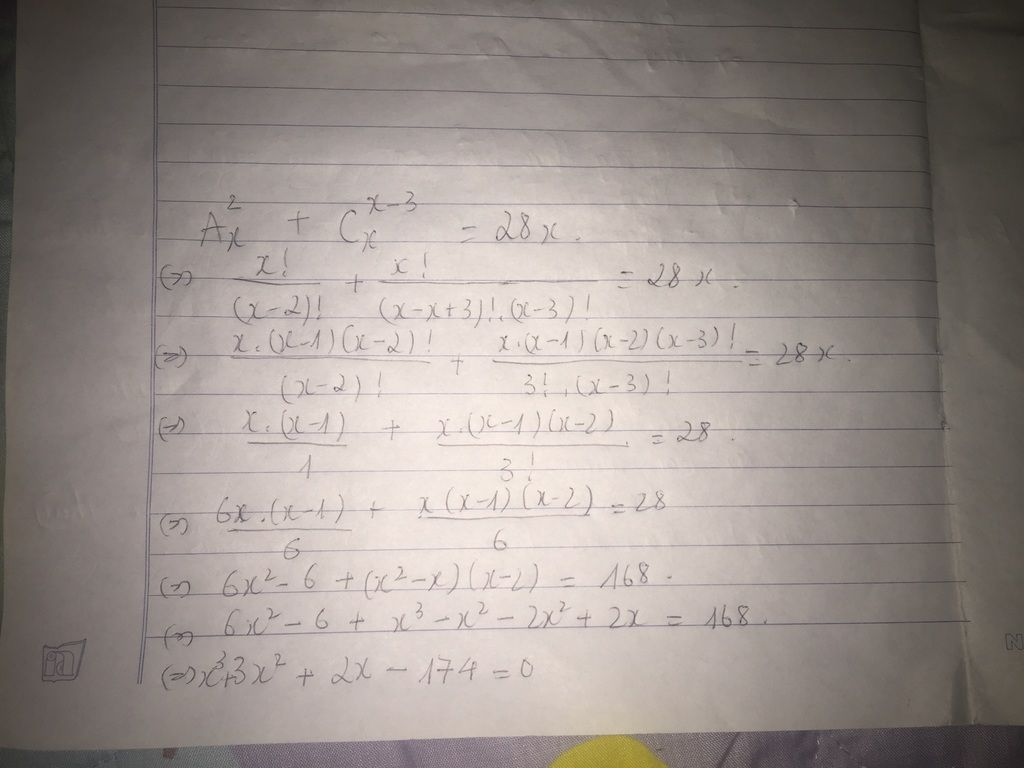 A²ₓ + Cₓˣ⁻³ = 28x.
(=>) x!/(x-2)! + x!/(x-x+3)!.(x-3)! = 28x.
(=>) x.(x-1)(x-2)!/(x-2)! + x.(x-1)(x-2)(x-3)!/3!.(x-3)! = 28x.
(=>) x.(x-1)/1 + x.(x-1)(x-2)/3! = 28.
(=>) 6x.(x-1)/6 + x(x-1)(x-2)/6 = 28
(=>) 6x² - 6 + (x² - x)(x-2) = 168.
(=>) 6x² - 6 + x³ - x² - 2x² + 2x = 168.
(=>) x³+3x² + 2x - 174 = 0